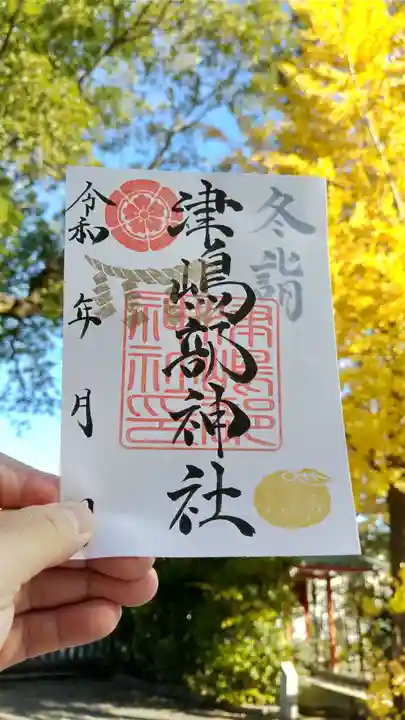 冬詣
津嶋部神社
令和 年 月 日
津嶋部
神社印